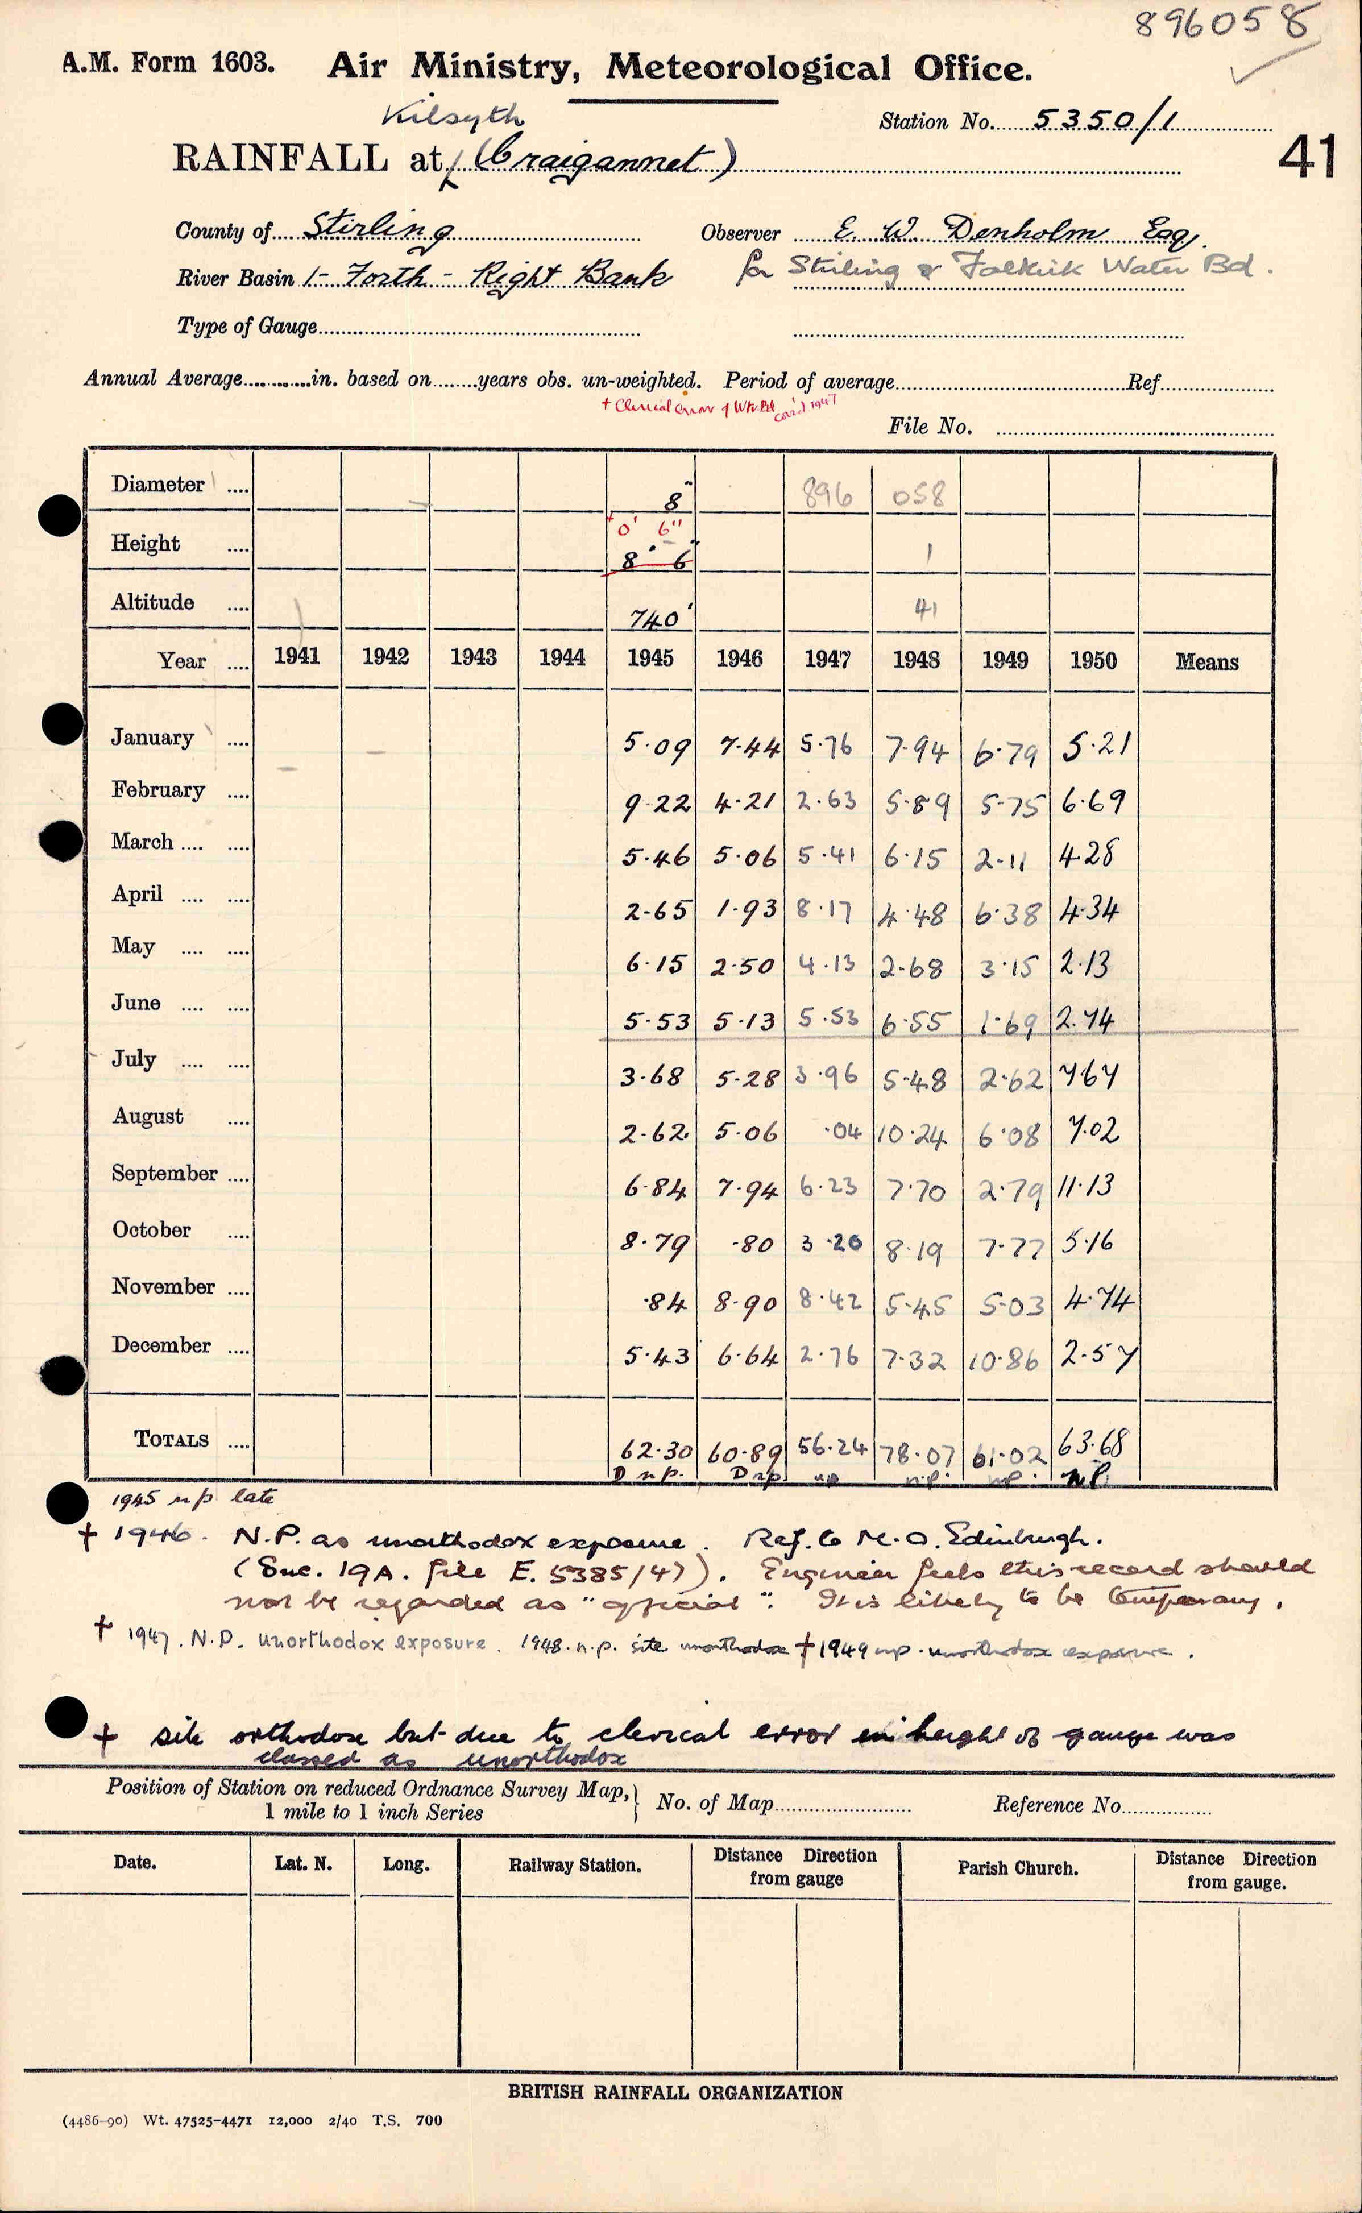 896058
A.M. Form 1603. Air Ministry, Meteorological Office.
Kilsyth
Station No. 5350/1
RAINFALL at (Craigannet)
41
County of Stirling Observer E. W. Denholm Esq.
River Basin 1- Forth - Right Bank for Stirling & Falkirk Water Bd.
Type of Gauge
Annual Average in. based on years obs. un-weighted. Period of average Ref.
+ Clerical error of Wtr Bd card 1947
File No.
Diameter 8" 896 058
+ 0' 6"
Height 8' 6" 1
Altitude 740' 41
Year 1941 1942 1943 1944 1945 1946 1947 1948 1949 1950 Means
January 5·09 7·44 5·76 7·94 6·79 5·21
February 9·22 4·21 2·63 5·89 5·75 6·69
March 5·46 5·06 5·41 6·15 2·11 4·28
April 2·65 1·93 8·17 4·48 6·38 4·34
May 6·15 2·50 4·13 2·68 3·15 2·13
June 5·53 5·13 5·53 6·55 1·69 2·74
July 3·68 5·28 3·96 5·48 2·62 7·67
August 2·62 5·06 ·04 10·24 6·08 7·02
September 6·84 7·94 6·23 7·70 2·79 11·13
October 8·79 ·80 3·20 8·19 7·77 5·16
November ·84 8·90 8·42 5·45 5·03 4·74
December 5·43 6·64 2·76 7·32 10·86 2·57
TOTALS 62·30 60·89 56·24 78·07 61·02 63·68
D n.p. D n.p. n.p. n.p. n.p. n.P.
1945 n/p late
† 1946. N.P. as unorthodox exposure. Ref. to M.O. Edinburgh.
(Enc. 19A. file E. 5385/47). Engineer feels this record should
not be regarded as "official". It is likely to be temporary.
† 1947. N.P. unorthodox exposure. 1948. n.p. site unorthodox † 1949 n.p. unorthodox exposure.
† site orthodox but due to clerical error in height of gauge was
classed as unorthodox
Position of Station on reduced Ordnance Survey Map, 1 mile to 1 inch Series No. of Map Reference No.
Date. Lat. N. Long. Railway Station. Distance Direction from gauge Parish Church. Distance Direction from gauge.
BRITISH RAINFALL ORGANIZATION
(4486-90) Wt. 47525-4471 12,000 2/40 T.S. 700